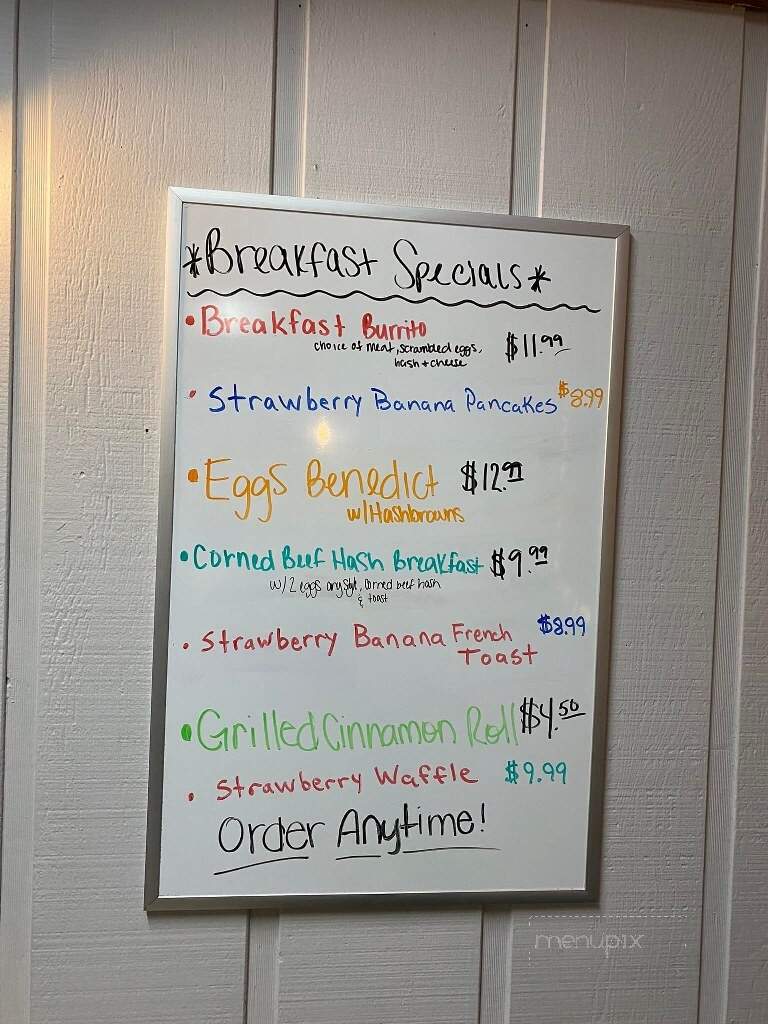 *Breakfast Specials*
• Breakfast Burrito $11.99
choice of meat, scrambled eggs,
hash + cheese
• Strawberry Banana Pancakes $8.99
• Eggs Benedict $12.99
w/Hashbrowns
• Corned Beef Hash Breakfast $9.99
w/2 eggs any style, corned beef hash
& toast
• Strawberry Banana French $8.99
Toast
• Grilled Cinnamon Roll $4.50
• Strawberry Waffle $9.99
Order Anytime!
menupix